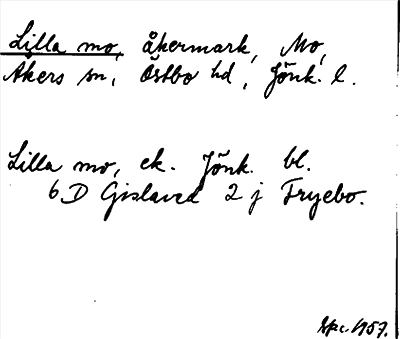 Lilla mo, åkermark, Mo,
Åkers sn, Östbo hd, Jönk. l.
Lilla mo, ek. Jönk. bl.
6 D Gislaved 2 j Fryebo.
1957.